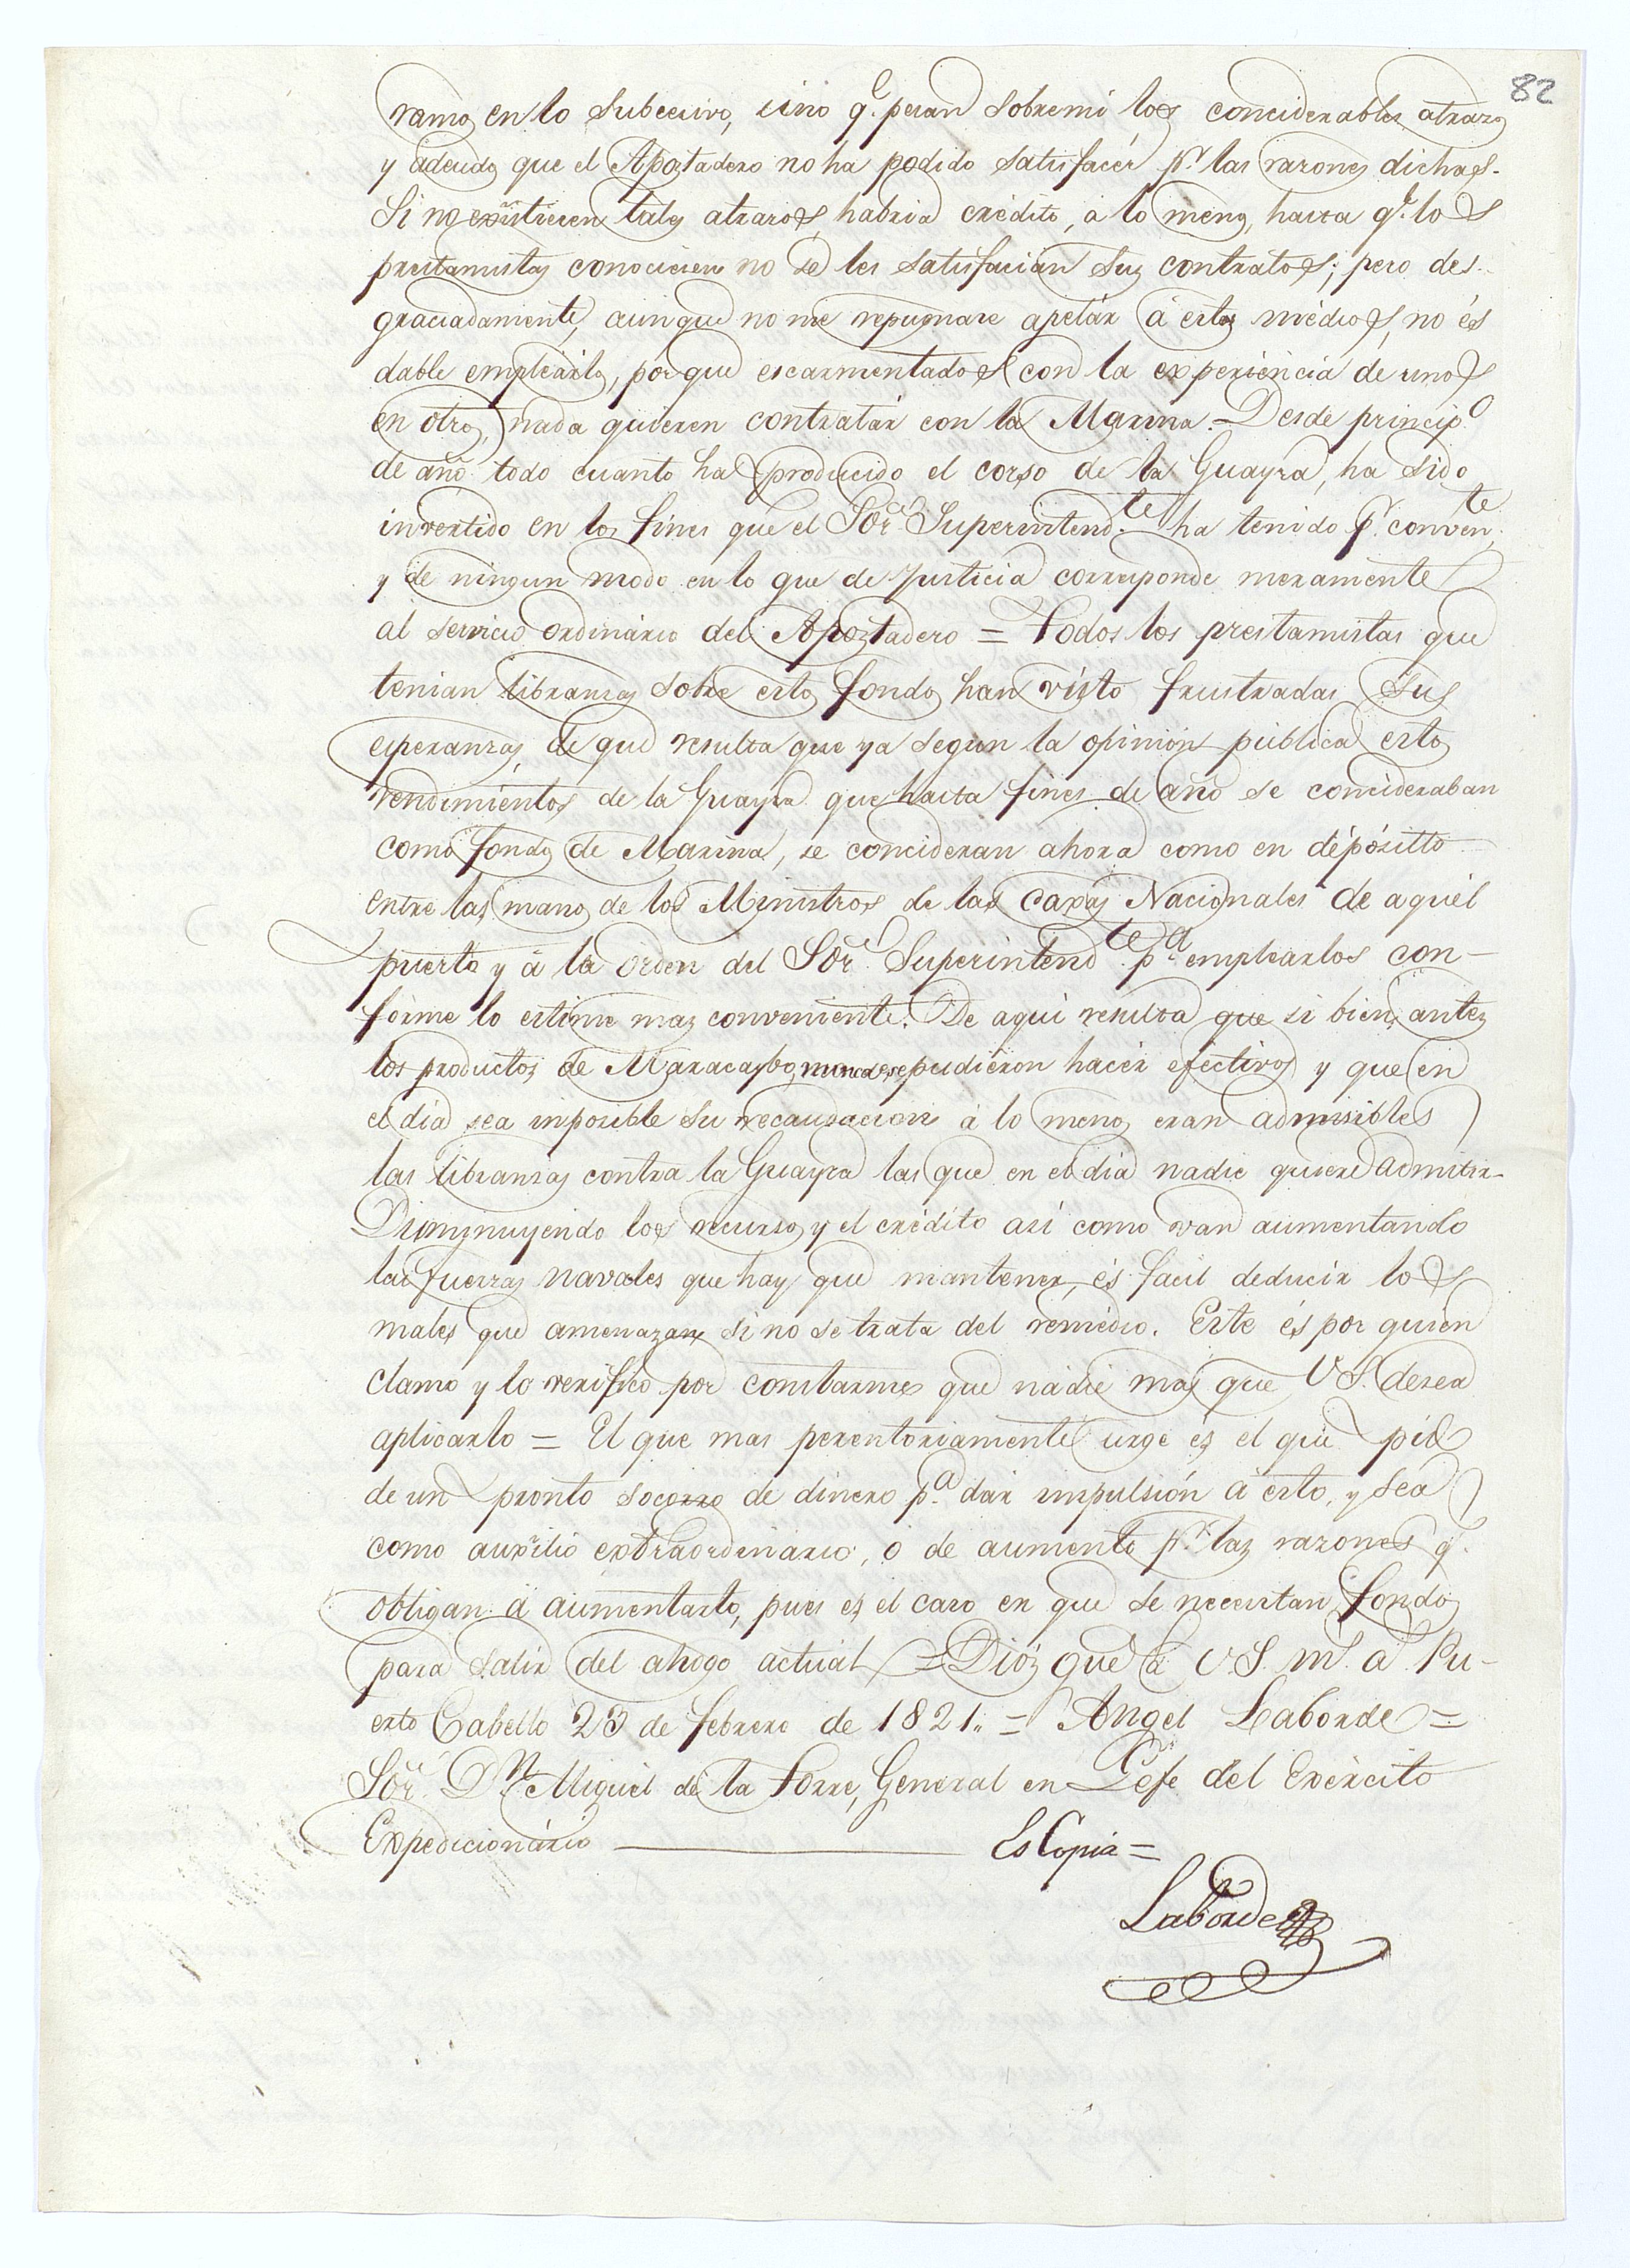 82
ramos en lo subcecivo, sino q.e pesan sobremi los conciderables atrazos
y adeudos que el Apostadero no ha podido satisfacér p.r las razones dichas.
Si no existiesen tales atrasos, habria crédito, á lo menos, hasta q.e los
prestamistas conociesen no se les satisfacian sus contratos; pero des-
graciadamente, aunque no me repugnase apelár á estos médios, no és
dable empleárlos, porque escarmentados con la experiéncia de unos
en otros, nada quieren contratár con la Marina. Desde princip.o
de año todo cuanto ha producido el corso de la Guayra, ha sido
invertido en los fines que el Sor. Superintend.te ha tenido p.r conven.te
y de ningun modo en lo que de Justicia corresponde meramente
al servicio ordinário del Apostadero = Todos los prestamistas que
tenian libranzas sobre estos fondos han visto frustradas sus
esperanzas, de que resulta que ya segun la opinión pública estos
rendimientos de la Guayra que hasta fines de año se concideraban
como fondos de Marina, se concideran ahora como en dépósitto
entre las manos de los Ministros de las caxas Nacionales de aquél
puerto y á la orden del Sor. Superintend.te p.a emplearlos con-
forme lo estime mas conveniente. De aqui resulta que si bien, antes
los productos de Maracaybo, nunca se pudiéron hacér efectivos y que en
el dia sea imposible su recaudacion á lo menos eran admisibles
las libranzas contra la Guayra las que en el dia nadie quiere admitir-
Disminuyendo los recursos y el crédito asi como van aumentando
las fuerzas navales que hay que mantener, és facil deducir los
males que amenazan si no se trata del remédio. Este és por quien
clamo y lo verifico por constarme que nadie mas que V S. desea
aplicarlo = El que mas perentoriamente urge es el que pide
de un pronto socorro de dinero p.a dar impulsión á esto, y sea
como auxilio extraordinario, ó de aumento p.r las razones q.e
obligan á aumentarlo, pues es el caso en que se necesitan fondos
para salir del ahogo actual = Dios gue á V.S. m.s a.s Pu-
erto Cabello 23 de febrero de 1821. = Angel Laborde =
Sor. D.n Miguel de la Torre, General en Gefe del Exército
Expedicionário Es Copia =
Laborde